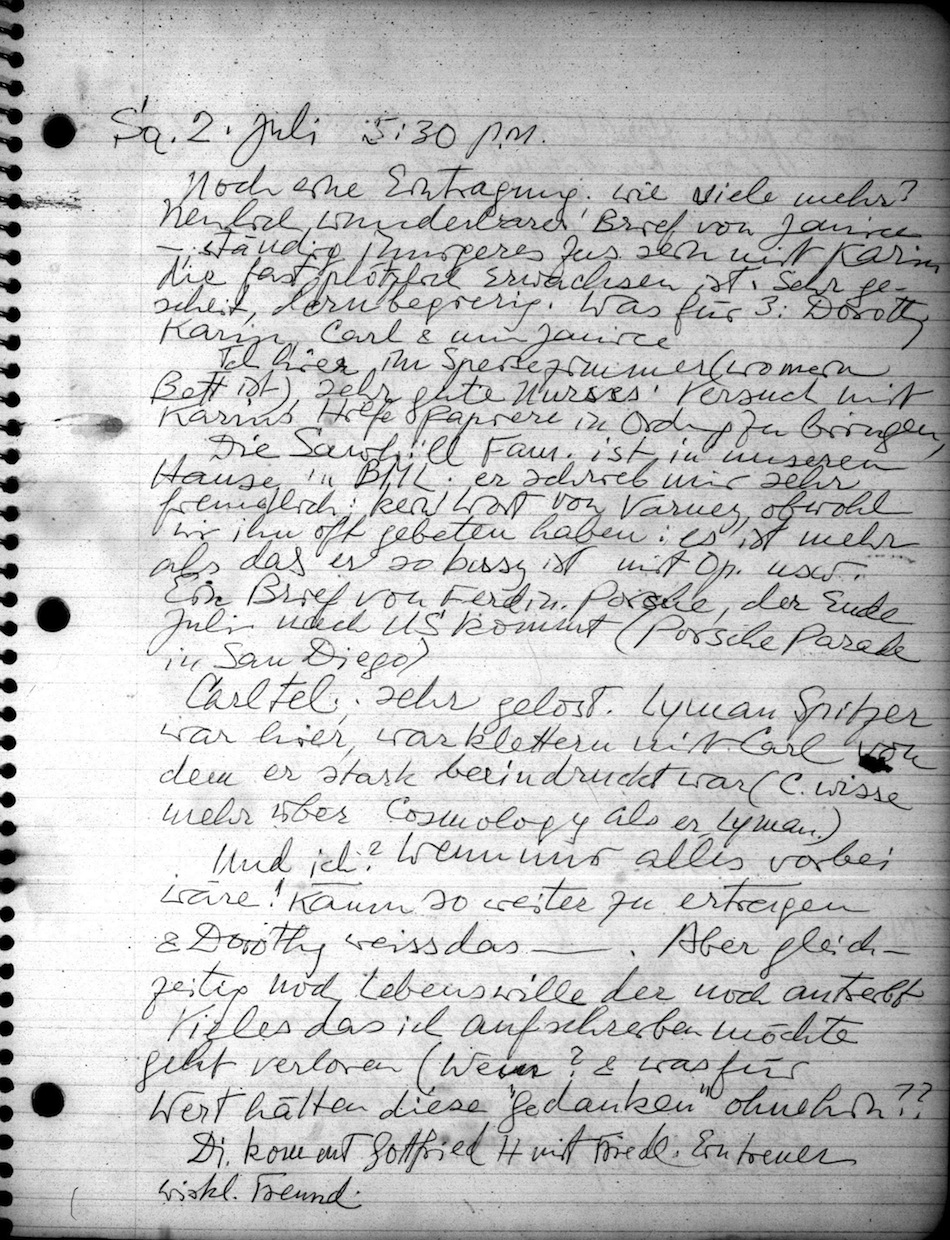 Sa. 2. Juli 5:30 p.m.
Noch eine Eintragung. wie viele mehr?
Neulich wunderbarer Brief von Janice
— ständig innigeres Zus. sein mit Karin
die fast plötzlich erwachsen ist. Sehr ge-
scheit, lernbegierig. Was für 3: Dorothy
Karin, Carl & nun Janice
Ich hier im Speisezimmer (wo mein
Bett ist), sehr gute Nurses. Versuch mit
Karins Hilfe Papiere in Ordng zu bringen,
Die Fam. ist in unserem
Hause in BML. er schrieb mir sehr
freundlich; kein Wort von Varney, obwohl
wir ihn oft gebeten haben: es ist mehr
als das er so busy ist mit Op. usw.
Ein Brief von Ferdin. Porsche, der Ende
Juli nach US kommt (Porsche Parade
in San Diego)
Carl tel.: sehr gelöst. Lyman Spitzer
war hier, war klettern mit Carl von
dem er stark beeindruckt war (C. wisse
mehr über Cosmology als er, Lyman.)
Und ich? Wenn nur alles vorbei
wäre! Kaum so weiter zu ertragen
& Dorothy weiss das — . Aber gleich-
zeitig noch Lebenswille der noch antreibt
Vieles das ich aufschreiben möchte
geht verloren (Wem? & was für
Wert hätten diese "Gedanken" ohnehin??
Di. kommt Gottfried H mit Friedl. Ein treuer
wirkl. Freund.